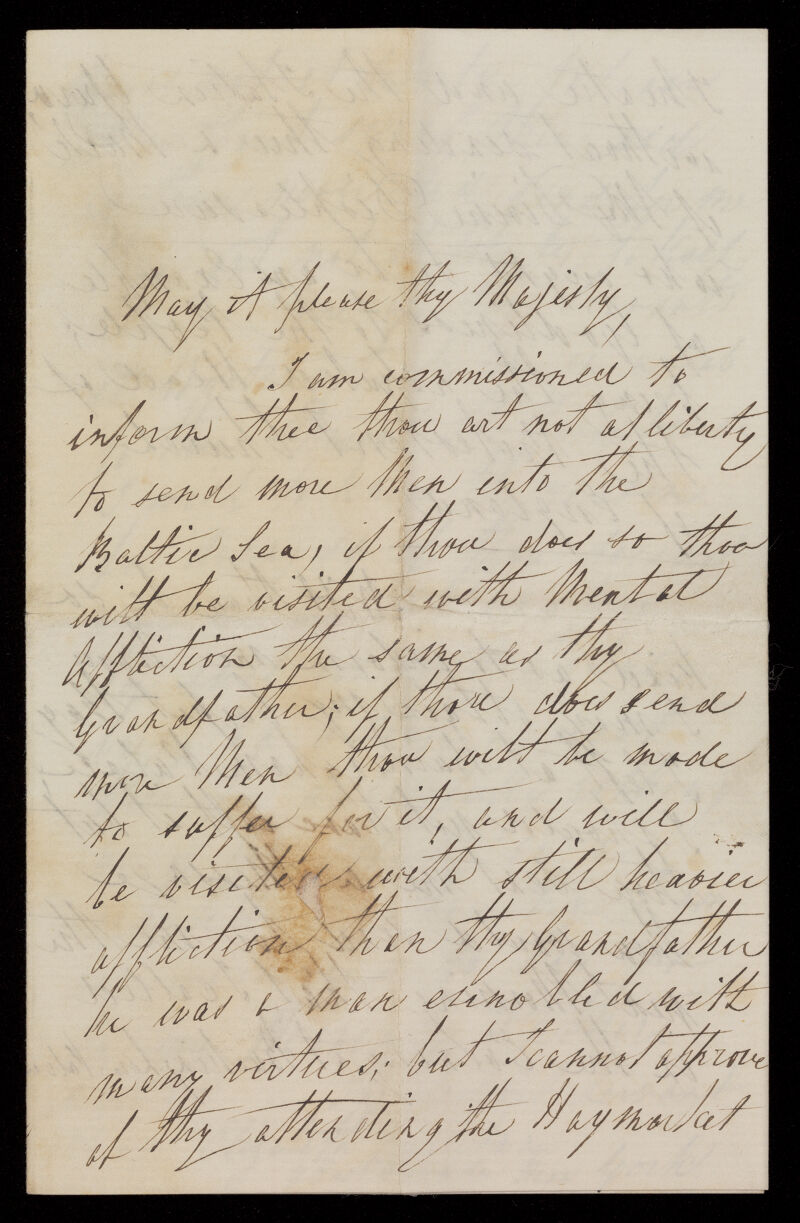 May it please thy Majesty,
I am commissioned to
inform thee thou art not at liberty
to send more Men into the
Baltic Sea, if thou does so thou
wilt be visited with Mental
Affliction the same as thy
Grandfather; if thou does send
more Men thou wilt be made
to suffer for it, and will
be visited with still heavier
affliction than thy Grandfather
he was a man ennobled with
many virtues; but I cannot approve
of thy attending the Haymarket